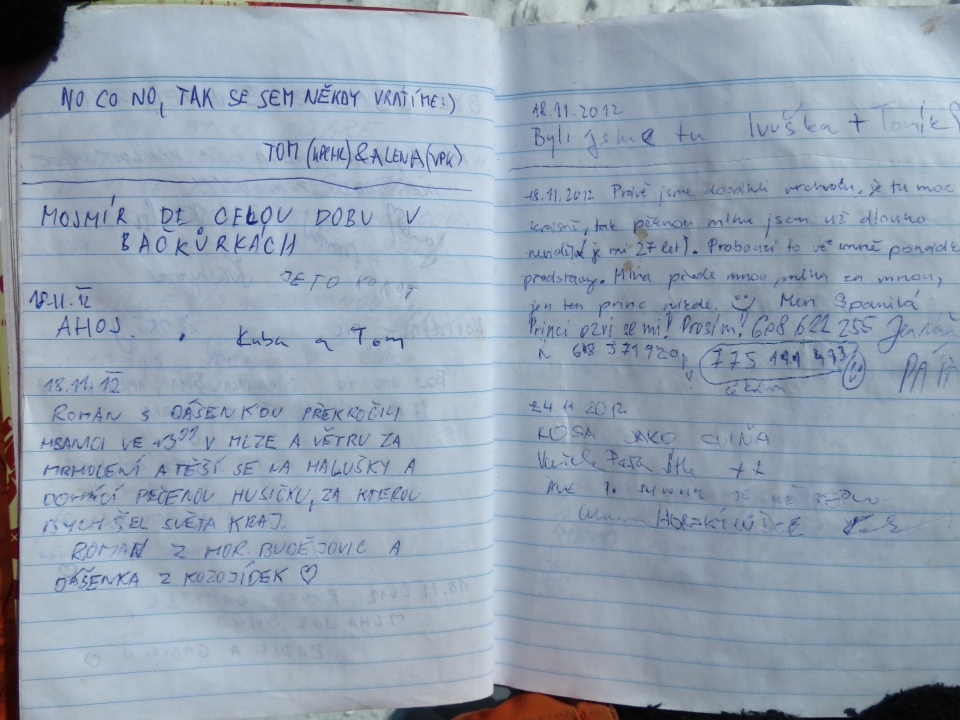 NO CO NO, TAK SE SEM NĚKDY VRÁTÍME:)
TOM (KPCHK) & ALENA (VPK)
MOJMÍR DE CELOU DOBU V
BAČKŮRKÁCH
JE TO KOKOT
18.11.12
AHOJ. Kuba a Tom
18.11.12
ROMAN S DÁŠENKOU PŘEKROČILI
HRANICI VE 13⁰⁰ V MLZE A VĚTRU ZA
MRHOLENÍ A TĚŠÍ SE NA HALUŠKY A
DOMÁCÍ PEČENOU HUSIČKU, ZA KTEROU
BYCH ŠEL SVĚTA KRAJ.
ROMAN Z MOR. BUDĚJOVIC A
DÁŠENKA Z KOZOJÍDEK ♡
18.11.2012
Byli jsme tu Ivuška + Tomík
18.11.2012 Právě jsme dosáhli vrcholu, je tu moc
krásně, tak pěknou mlhu jsem už dlouho
neviděla (je mi 27 let). Probouzí to ve mně
představy. Mlha přede mnou, mlha za mnou,
jen ten princ nikde. Meri Spanilá
Princi ozvi se mi! Prosím! 608 622 255
775
čekám
PÁ PÁ
24 11 2012
KOSA JAKO